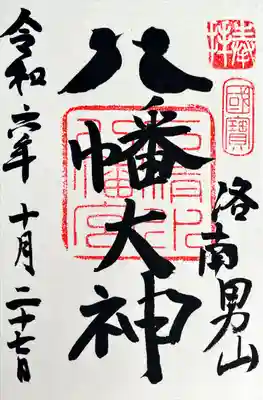 奉拝
國寶
洛南男山
八幡大神
石清水八幡宮
令和六年十月二十七日